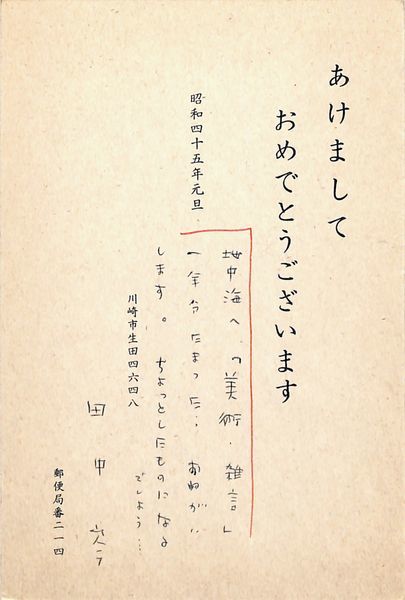 あけまして
おめでとうございます
昭和四十五年元旦
地中海へ「美術・雑言」
一年分たまった、お願がい
します。ちょっとしたものになる
でしょう…
川崎市生田四六四八
田中
郵便局番二一四